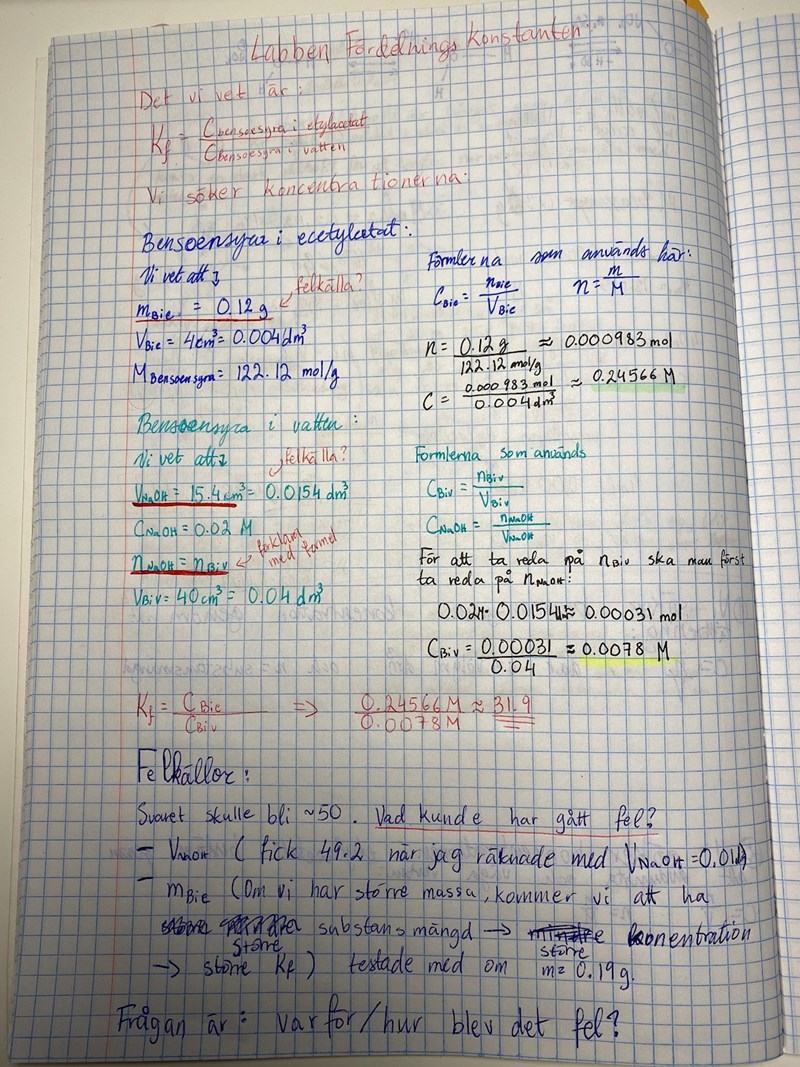 Labben Fördelnings konstanten
Det vi vet är:
Kf = Cbensoesyra i etylacetat / Cbensoesyra i vatten
Vi söker koncentrationerna.
Bensoensyra i ecetylatat:
Vi vet att ↴
felkälla?
mBie = 0.12 g
VBie = 4cm³ = 0.004 dm³
MBensoensyra = 122.12 mol/g
Formlerna som används här:
CBie = nBie / VBie n = m / M
n = 0.12 g / 122.12 mol/g ≈ 0.000983 mol
C = 0.000983 mol / 0.004 dm³ ≈ 0.24566 M
Bensoensyra i vatten:
Vi vet att ↴
felkälla?
VNaOH = 15.4 cm³ = 0.0154 dm³
CNaOH = 0.02 M
nNaOH = nBiv
förklara med formel
VBiv = 40cm³ = 0.04 dm³
Formlerna som används
CBiv = nBiv / VBiv
CNaOH = nNaOH / VNaOH
För att ta reda på nBiv ska man först
ta reda på nNaOH:
0.02M · 0.0154 ≈ 0.00031 mol
CBiv = 0.00031 / 0.04 ≈ 0.0078 M
Kf = CBie / CBiv ⇒ 0.24566 M / 0.0078 M ≈ 31.9
Felkällor:
Svaret skulle bli ~50. Vad kunde har gått fel?
– VNaOH ( fick 49.2 när jag räknade med VNaOH = 0.01)
– mBie (Om vi har större massa, kommer vi att ha
större substansmängd → större koncentration
→ större Kf) testade med om m = 0.19g.
Frågan är: varför/hur blev det fel?